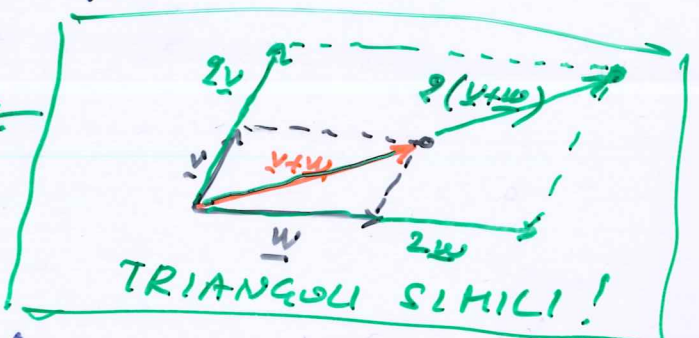 2v
2(v+w)
v
v+w
w
2w
TRIANGOLI SIMILI!